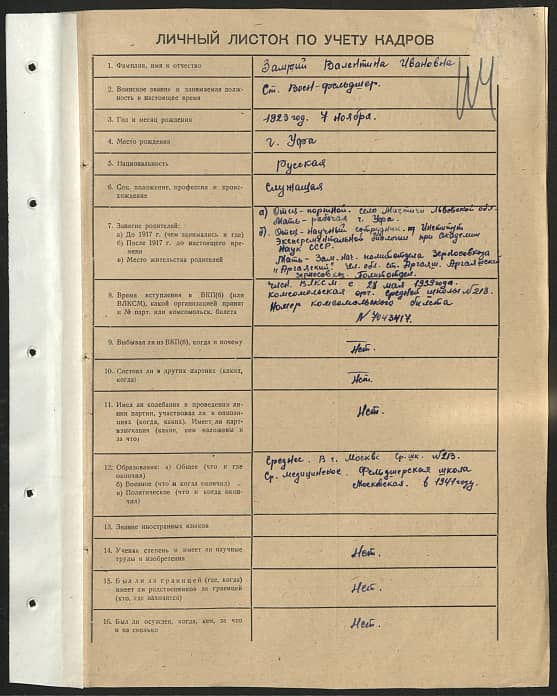 ЛИЧНЫЙ ЛИСТОК ПО УЧЕТУ КАДРОВ
1. Фамилия, имя и отчество
Замрий Валентина Ивановна
2. Воинское звание и занимаемая долж-
ность в настоящее время
Ст. Воен-фельдшер.
3. Год и месяц рождения
1923 год. 7 ноября.
4. Место рождения
г. Уфа
5. Национальность
Русская
6. Соц. положение, профессия и проис-
хождение
Служащая
7. Занятие родителей:
а) До 1917 г. (чем занимались и где)
б) После 1917 г. до настоящего вре-
мени
в) Место жительства родителей
а) Отец-портной. село Мистичи Львовской обл.
Мать-рабочая г. Уфа.
б). Отец-научный сотрудник Институт
Экспериментальной биологии при академии
Наук СССР.
Мать-Зам. нач. политотдела Зерносовхоза
"Аргаяский" Чел. обл. ст. Аргаяш. Аргаяшский
зерносовхоз. Политотдел.
8. Время вступления в ВКП(б) (или
ВЛКСМ), какой организацией принят
и № парт. или комсомольск. билета
член ВЛКСМ с 28 мая 1939 года.
комсомольская орг. средней школы №213.
Номер комсомольского билета
N 7043417.
9. Выбывал ли из ВКП(б), когда и почему
Нет.
10. Состоял ли в других партиях (каких,
когда)
Нет.
11. Имел ли колебания в проведении ли-
нии партии, участвовал ли в оппози-
циях (когда, каких). Имеет ли парт-
взыскания (какие, кем наложены и
за что)
Нет.
12. Образование: а) Общее (что и где
окончил)
б) Военное (что и когда окончил)
в) Политическое (что и когда окон-
чил)
Среднее. В г. Москве Ср. шк. №213.
Ср. медицинское. Фельдшерская школа
Московская. в 1941 году.
13. Знание иностранных языков
14. Ученая степень и имеет ли научные
труды и изобретения
Нет.
15. Был ли за границей (где, когда)
имеет ли родственников за границей
(кто, где находится)
Нет.
16. Был ли осужден, когда, кем, за что
и на сколько
Нет.